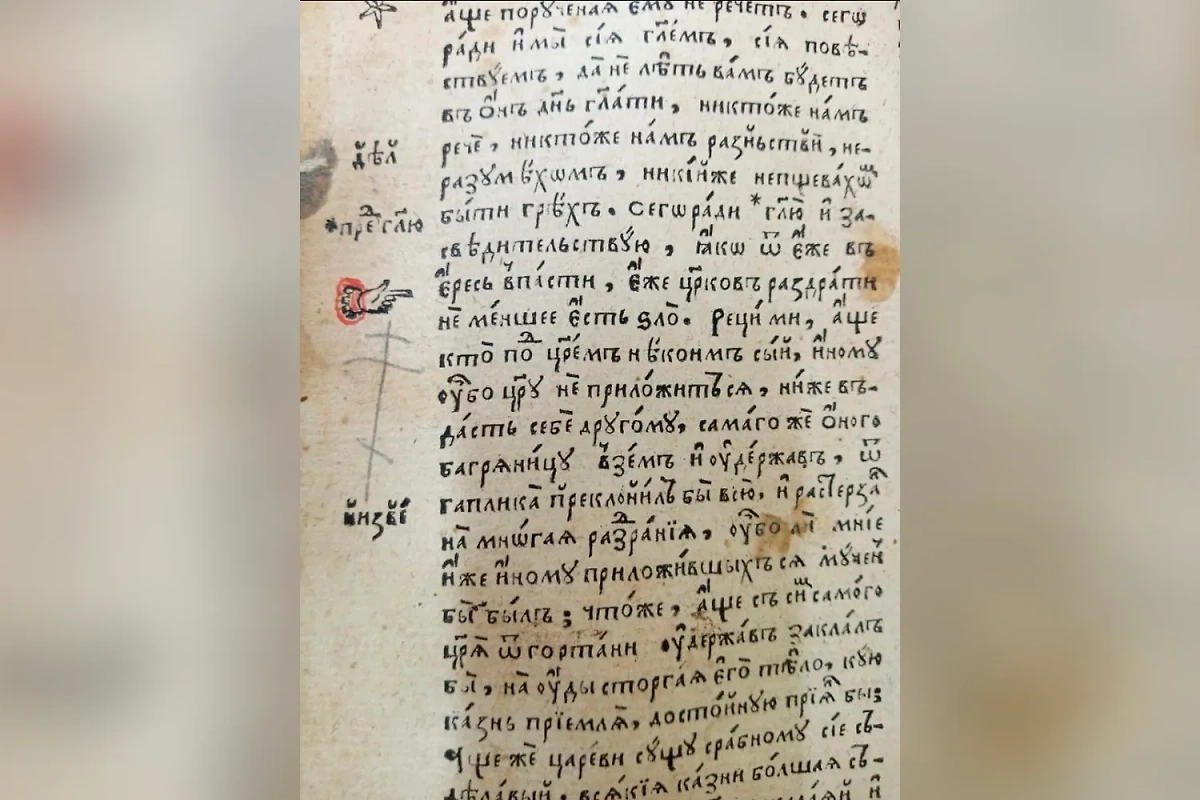 а҆́ще порꙋ́ченаѧ є҆мꙋ̀ не рече́тъ. сегѡ̀
ра́ди и҆ мы̀ сїѧ̑ гл҃емъ, сїѧ̑ повѣ́-
ствꙋемъ, да̀ нѐ лѣ́ть ва́мъ бꙋ́детъ
въ ѻ҆́нъ дн҃ь гл҃а́ти, никто́же на́мъ
речѐ, никто́же на́мъ разньстві́й, не-
разꙋмѣ́хомъ, никі́йже непщева́хꙋ
бы́ти грѣ́хъ. Сегѡ̀ ра́ди *гл҃ю и҆ за-
свѣдительствꙋ́ю, ꙗ҆́кѡ ѿ є҆́же въ
є҆́ресь впа́сти, є҆́же цр҃ковъ раздра́ти
нѐ ме́ншее є҆́сть ѕло̀. Рецы́ ми, а҆́ще
кто̀ поⷣ цр҃е́мъ нѣ́коимъ сы́й, и҆́номꙋ
ᲂу҆́бо цр҃ꙋ̀ нѐ приложи́тьсѧ, ни́же въ-
да́сть себѐ дрꙋго́мꙋ, сама́го же ѻ҆́ного
багрѧни́цꙋ взе́мъ и҆ ᲂу҆де́ржавъ, ѿ
гаплика̀ преклони́лъ бы̀ всю̀, и҆ растерза́л
на̀ мнѡ́гаѧ раⷣзра́нїѧ, ᲂу҆́бо лѝ мні́е
и҆́же и҆́номꙋ приложи́вшыхъсѧ мꙋ́чен
бы̀ бы́лъ; что́же, а҆́ще съ си́мⷨ само́го
цр҃ѧ̀ ѿ горта́ни ᲂу҆держа́въ закла́лъ
бы̀, на̀ ᲂу҆́ды сторга́ѧ є҆го̀ тѣ́ло, кꙋ́ю
ка́знь прїе́млѧ, досто́йнꙋю прїѧ́л бы̀;
а҆́ще жѐ царе́ви сꙋ́щꙋ сра́бномꙋ сїѐ съ-
дѣ́лавый, всѧ́кїѧ ка́зни бо́лшаѧ съ-
дѣ́л
*преⷣ гл҃ю